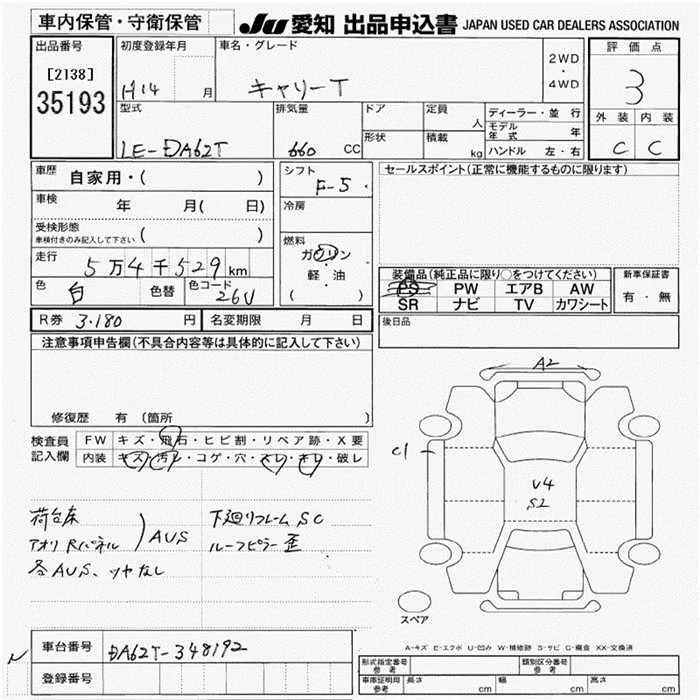 車内保管・守衛保管
JU 愛知 出品申込書 JAPAN USED CAR DEALERS ASSOCIATION
出品番号
[2138]
35193
初度登録年月
H14 月
車名・グレード
キャリーT
2WD
・
4WD
評価点
3
外装 内装
C C
型式
LE-DA62T
排気量
660 CC
ドア
形状
定員
人
積載
kg
ディーラー・並行
モデル年式 年
ハンドル 左・右
車歴 自家用・( )
車検 年 月( 日)
受検形態
車検付きのみ記入して下さい ( )
走行
5万4千529km
色 白 色替 色コード 26U
シフト
F-5
冷房
燃料
ガソリン
軽・油
( )
セールスポイント(正常に機能するものに限ります)
装備品(純正品に限り○をつけてください)
PS PW エアB AW
SR ナビ TV カワシート
新車保証書
有・無
R券 3.180 円 名変期限 月 日
後日品
注意事項申告欄(不具合内容等は具体的に記入して下さい)
修復歴 有 (箇所 )
検査員記入欄
FW キズ・飛石・ヒビ割・リペア跡・X要
内装 キズ・汚レ・コゲ・穴・スレ・キレ・破レ
荷台床
アオリ Rパネル
AUS
各AUS、ツヤなし
下廻りフレームSC
ルーフピラー歪
A2
C1
V4
S2
スペア
A-キズ E-エクボ U-凹み W-補修跡 S-サビ C-腐食 XX-交換済
車台番号 DA62T-348192
登録番号
形式指定番号 参考
類別区分番号 参考
車庫証明用 参考 長さ cm 幅 cm 高さ cm